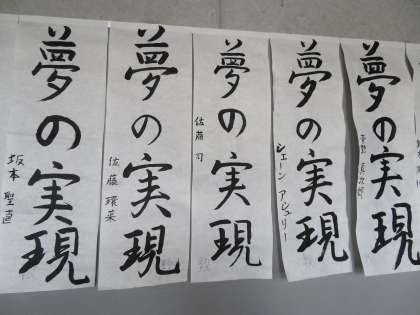 夢の実現
坂本 聖直
夢の実現
佐藤 環菜
夢の実現
佐藤 司
夢の実現
シェーン アシュリー
夢の実現